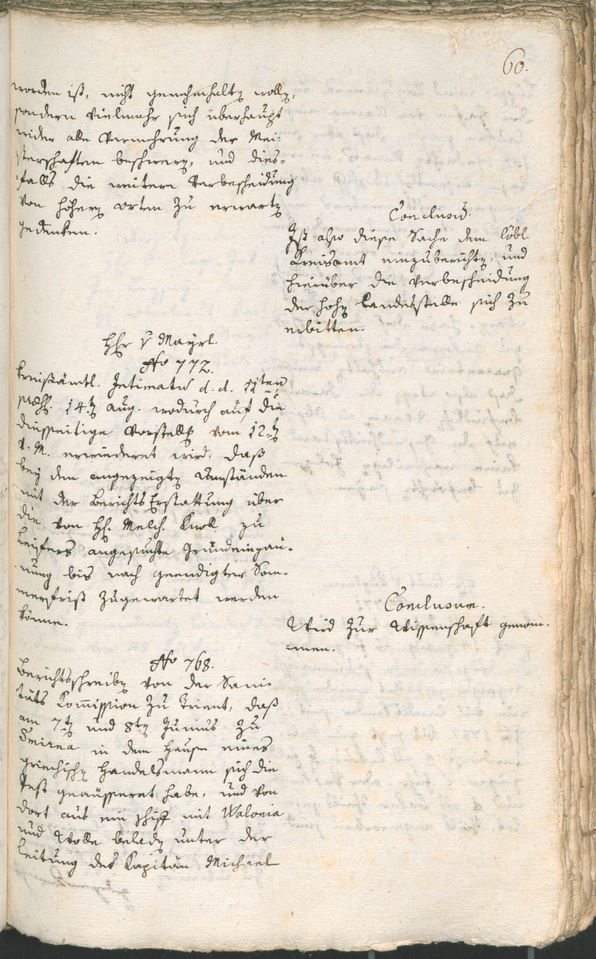 60.
worden ist, nicht gemeinhaltz
sondern vielmehr sich überhaupt
wider alle Vermehrung der Mei-
sterschaften beschwerz, und dies-
falls die weitere Verbescheidung
von höhern Orten zu erwartz
gedenken.
Conclusum.
Ist also diese Sache dem löbl.
Kreisamt einzuberichtz, und
hierüber die Verbescheidung
der hohz Landesstelle sich zu
erbitten.
Hr v Mayrl.
No 772.
Kreisämtl. Intimatum d. d.
14tz Aug. wodurch auf die
diesseitige Vorstellg vom 12tz
d. M. erwiederet wird, daß
bey den angezeigtz Umständen
mit der Berichts Erstattung über
die von H. Melch. Knol zu
Leifers angesuchte
nung bis nach geendigter Som-
merfrist zugewartet werden
könne.
Conclusum.
Wird zur Wissenschaft genom-
men.
No 768.
Berichtschreibz von der Sani-
täts Kommission zu Trient, daß
am 7tz und 8tz Junius zu
Smirna in dem Hause eines
griechischz Handelsmann sich die
Pest geäusseret habe, und von
dort aus ein Schiff mit Walonia
und Wolle beladz unter der
Leitung des Kapitän Michael